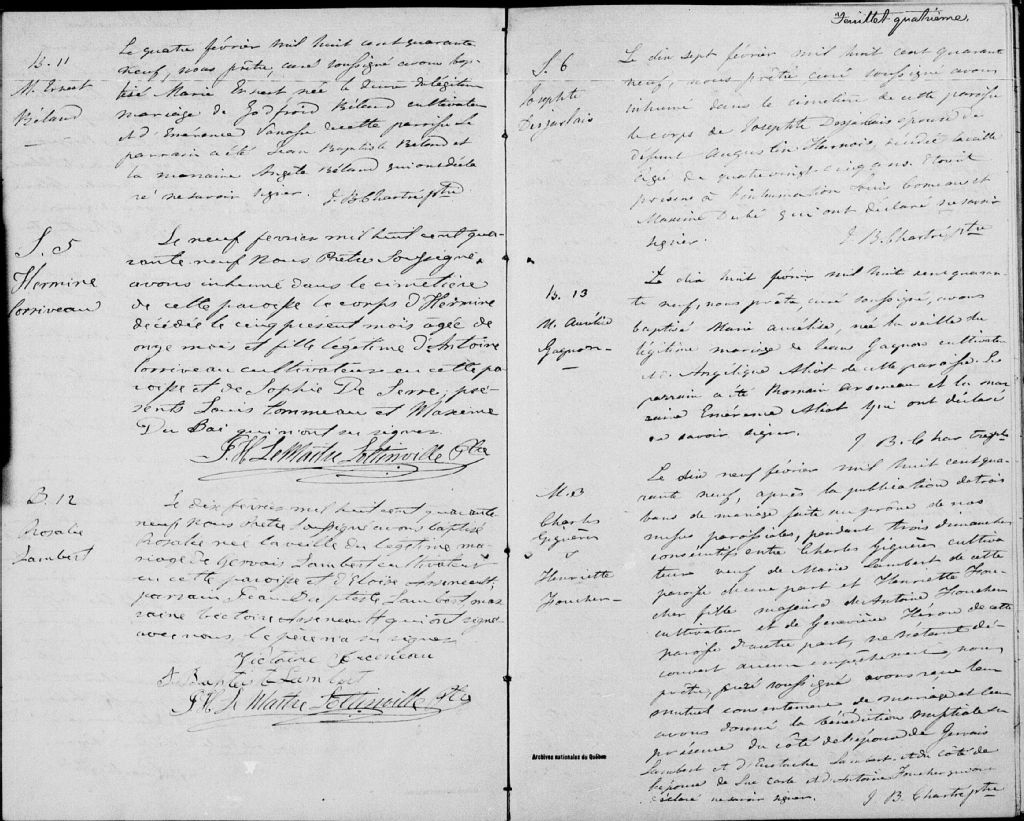 B. 11
M. Ernest
Béland
Le quatre février mil huit cent quarante
neuf, nous prêtre, curé soussigné avons bap
tisé Marie Ernest née le du légitime
mariage de Godfroid Béland cultivateur
et d'Emérence de cette paroisse le
parrain a été Jean Baptiste Béland et
la marraine Angele Béland qui ont décla
ré ne savoir signer. J B Chartré ptre
S. 5
Hermine
Corriveau
Le neuf fevrier mil huit cent qua-
rante neuf Nous Prêtre Soussigné,
avons inhumé dans le cimetière
de cette paroisse le corps d'Hermine
décédée le cinq présent mois agée de
onze mois et fille légitime d'Antoine
Corriveau cultivateur en cette pa
roisse et de Sophie De Serre; pré-
sents Louis Commeau et Maxime
Du Bai qui n'ont su signer.
F. H. LeMaitre Lottinville Ptre
B. 12
Rosalie
Lambert
Le dix fevrier mil huit cent quarante
neuf Nous Prêtre Soussigné avons baptisé
Rosalie née la veille du légitime ma-
riage de Gervais Lambert cultivateur
en cette paroisse et d'Eloise Arseneault;
parrain Jean Bapteste Lambert, mar
raine Victoire Arseneault qui ont signé
avec nous, le père n'a su signer
Victoire Arceneau
J. Baptiste Lambert
F. H. Le Maitre Lottinville Ptre
Feuillet quatrième.
S. 6
Josephte
Desjarlais
Le dix sept février mil huit cent quarante
neuf, nous prêtre curé soussigné avons
inhumé dans le cimetière de cette paroisse
le corps de Josephte Desjarlais épouse de
défunt Augustin décédée la veille
âgée de quatre vingt cinq ans. Etaient
présens à l'inhumation Louis Comeau et
Maxime Dubé qui ont déclaré ne savoir
signer.
J B. Chartré ptre
B. 13
M. Aurélie
Gagnon
Le dix huit février mil huit cent quaran-
te neuf, nous prêtre, curé soussigné, avons
baptisé Marie Aurélise, née la veille du
légitime mariage de Gagnon cultivateur
et Angélique de cette paroisse. Le
parrain a été Romain Arseneau et la mar
raine Emérence qui ont déclaré
ne savoir signer.
J B. Chartré ptre
M. 3
Charles
Giguère
&
Henriette
Foucher
Le dix neuf février mil huit cent qua-
rante neuf, après la publication de trois
bans de mariage faite au prône de nos
messes paroissiales, pendant trois dimanches
consécutifs entre Charles Giguère cultiva
teur veuf de Marie Lambert de cette
paroisse d'une part et Henriette Fou-
cher fille majeure de Antoine Foucher
cultivateur et de Geneviève Héron de cette
paroisse d'autre part, ne s'étant dé-
couvert aucun empêchement, nous
prêtre, curé soussigné avons reçu leur
mutuel consentement de mariage et leur
avons donné la bénédiction nuptiale en
présence du côté de l'époux de Gervais
Lambert et d'Eustache Lambert et du côté de
l'épouse de Luc et d'Antoine Foucher qui ont
déclaré ne savoir signer. J B. Chartré ptre
Archives nationales du Québec